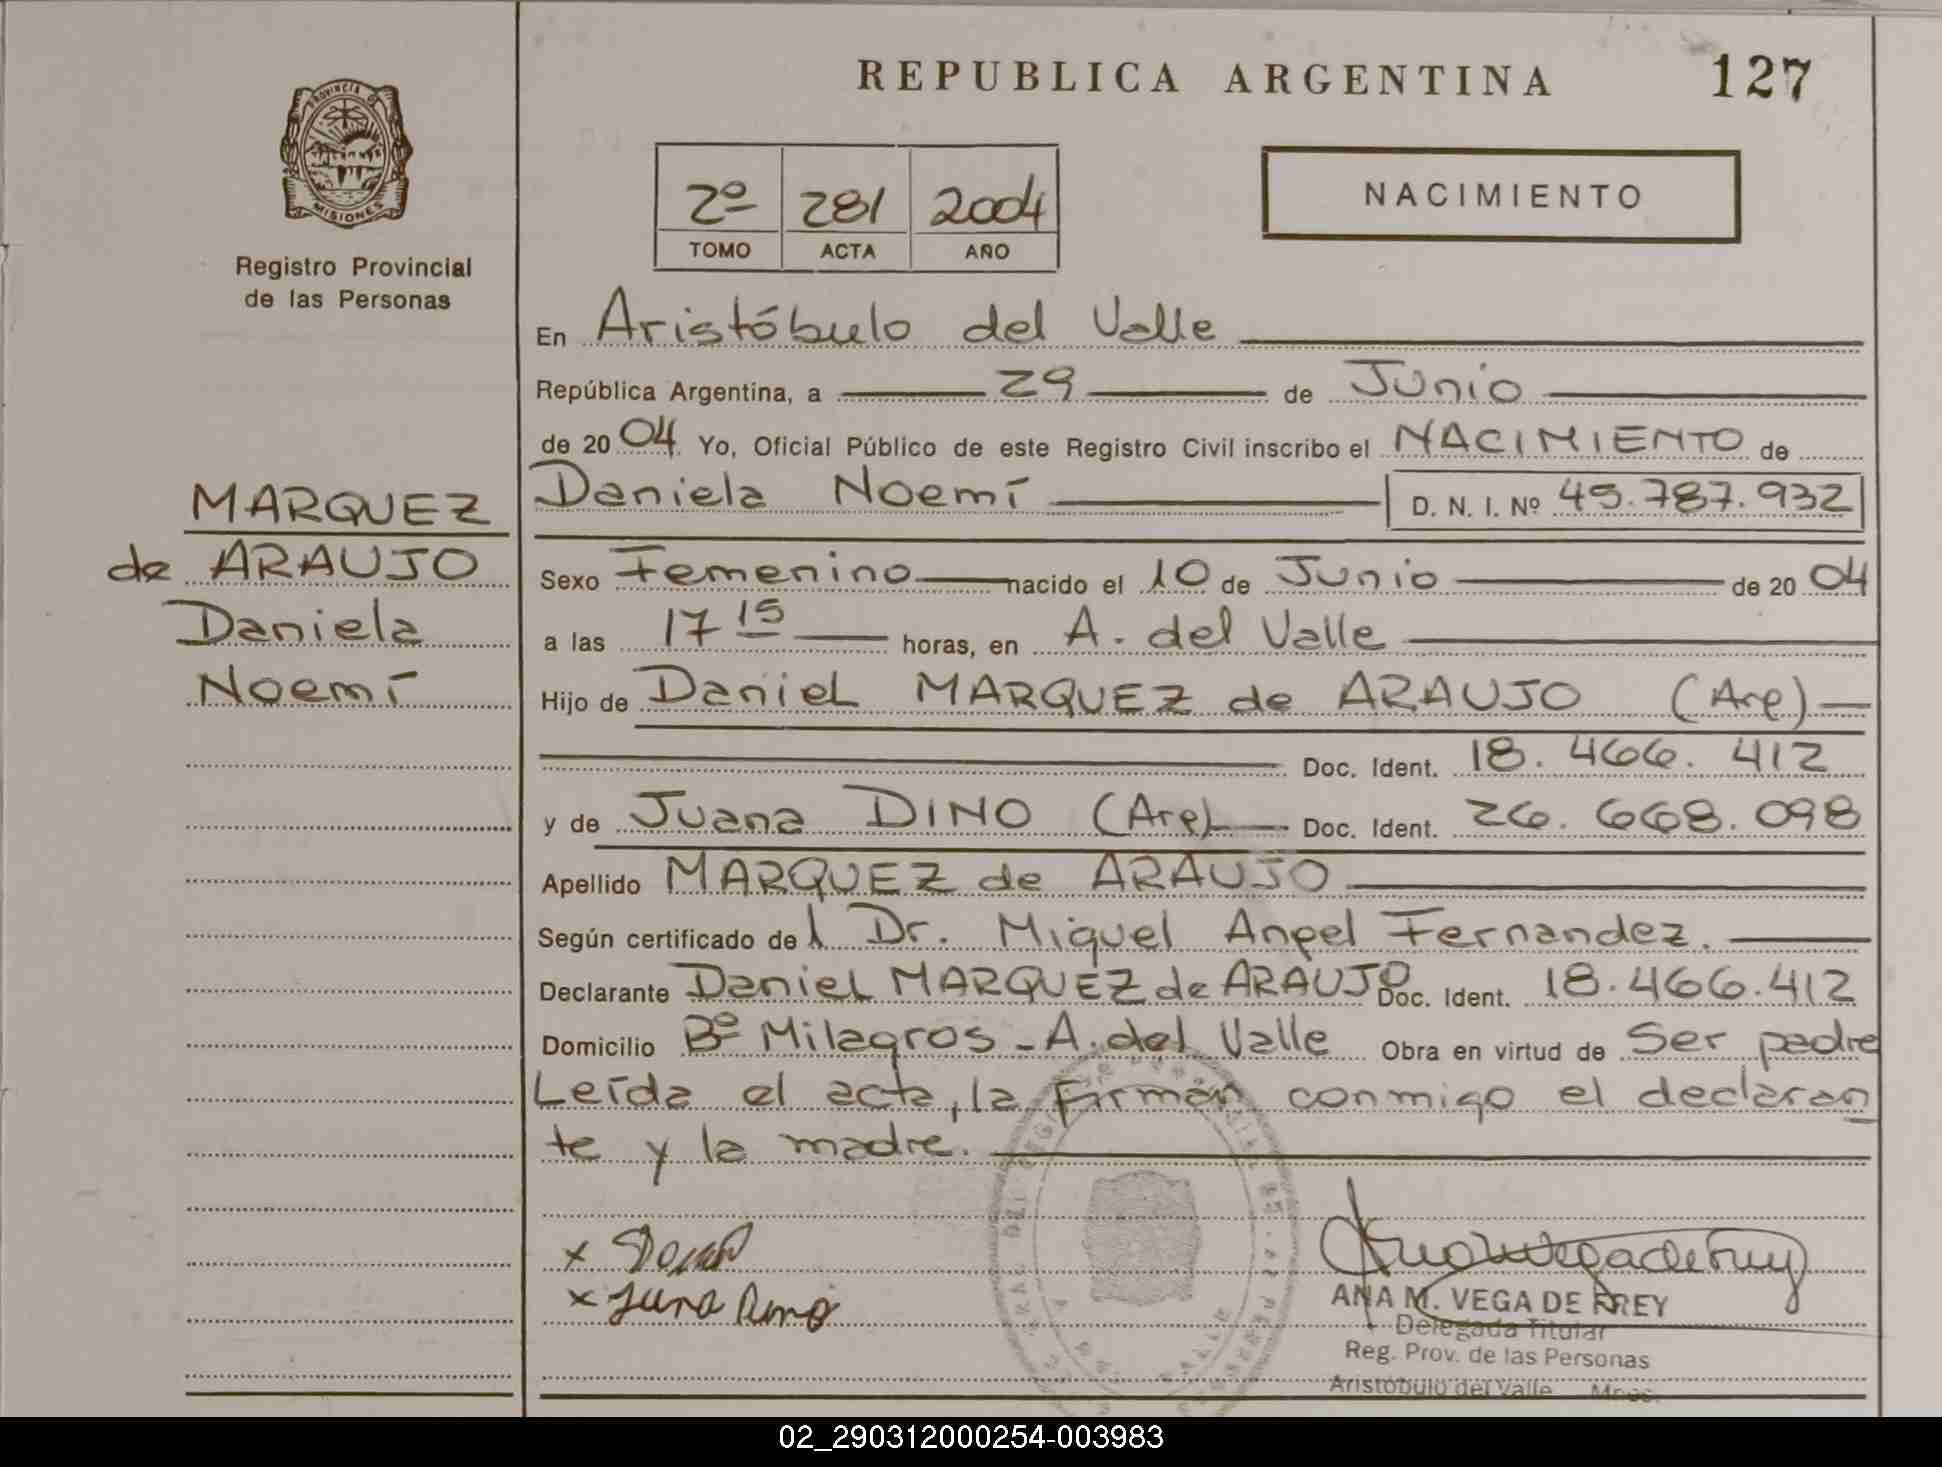 REPUBLICA ARGENTINA
127
PROVINCIA DE
MISIONES
Registro Provincial
de las Personas
2º 281 2004
TOMO ACTA AÑO
NACIMIENTO
En Aristóbulo del Valle
República Argentina, a 29 de Junio
de 2004 Yo, Oficial Público de este Registro Civil inscribo el NACIMIENTO de
Daniela Noemí D. N. I. Nº 45.787.932
MARQUEZ
de ARAUJO
Daniela
Noemí
Sexo Femenino nacido el 10 de Junio de 2004
a las 17 15 horas, en A. del Valle
Hijo de Daniel MARQUEZ de ARAUJO (Arg)
Doc. Ident. 18.466.412
y de Juana DINO (Arg) Doc. Ident. 26.668.098
Apellido MARQUEZ de ARAUJO
Según certificado del Dr. Miguel Angel Fernandez.
Declarante Daniel MARQUEZ de ARAUJO Doc. Ident. 18.466.412
Domicilio Bº Milagros - A. del Valle Obra en virtud de Ser padre
Leída el acta, la firman conmigo el declaran
te y la madre.
x
x Juna Dino
ANA M. VEGA DE FREY
Delegada Titular
Reg. Prov. de las Personas
Aristóbulo del Valle Mnes.
02_290312000254-003983